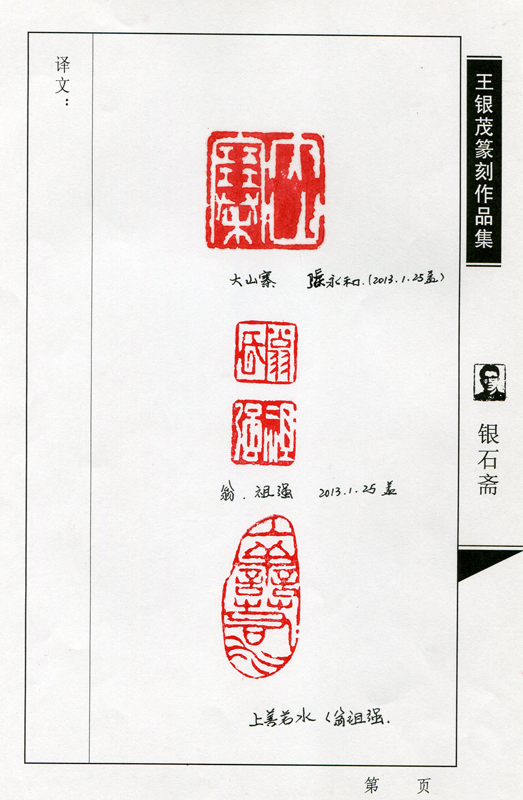 译文：
大山寨
大山寨 張永和.(2013.1.25盖)
翁
祖强
翁.祖强 2013.1.25盖
上善若水
上善若水(翁祖强.
王银茂篆刻作品集
银石斋
第 页